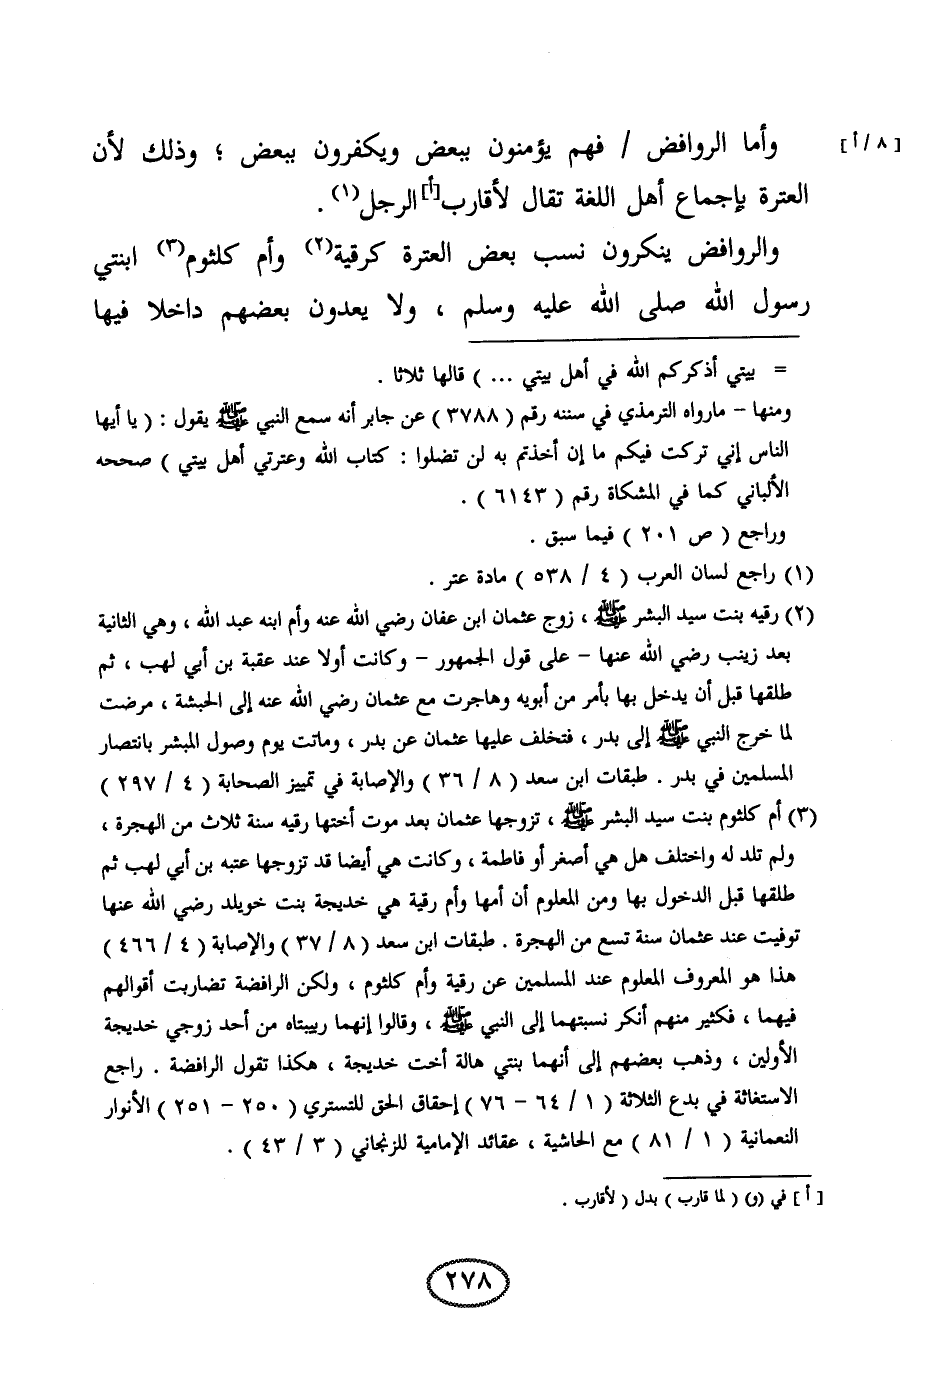 [ ٨ / أ ] وأما الروافض / فهم يؤمنون ببعض ويكفرون ببعض ؛ وذلك لأن
العترة بإجماع أهل اللغة تقال لأقارب[أ] الرجل(١) .
والروافض ينكرون نسب بعض العترة كرقية(٢) وأم كلثوم(٣) ابنتي
رسول الله صلى الله عليه وسلم ، ولا يعدون بعضهم داخلا فيها
= بيتي أذكركم الله في أهل بيتي ... ) قالها ثلاثا .
ومنها - مارواه الترمذي في سننه رقم ( ٣٧٨٨ ) عن جابر أنه سمع النبي ﷺ يقول : ( يا أيها
الناس إني تركت فيكم ما إن أخذتم به لن تضلوا : كتاب الله وعترتي أهل بيتي ) صححه
الألباني كما في المشكاة رقم ( ٦١٤٣ ) .
وراجع ( ص ٢٠١ ) فيما سبق .
(١) راجع لسان العرب ( ٤ / ٥٣٨ ) مادة عتر .
(٢) رقيه بنت سيد البشر ﷺ ، زوج عثمان ابن عفان رضي الله عنه وأم ابنه عبد الله ، وهي الثانية
بعد زينب رضي الله عنها - على قول الجمهور - وكانت أولا عند عقبة بن أبي لهب ، ثم
طلقها قبل أن يدخل بها بأمر من أبويه وهاجرت مع عثمان رضي الله عنه إلى الحبشة ، مرضت
لما خرج النبي ﷺ إلى بدر ، فتخلف عليها عثمان عن بدر ، وماتت يوم وصول المبشر بانتصار
المسلمين في بدر . طبقات ابن سعد ( ٨ / ٣٦ ) والإصابة في تمييز الصحابة ( ٤ / ٢٩٧ )
(٣) أم كلثوم بنت سيد البشر ﷺ ، تزوجها عثمان بعد موت أختها رقيه سنة ثلاث من الهجرة ،
ولم تلد له واختلف هل هي أصغر أو فاطمة ، وكانت هي أيضا قد تزوجها عتبه بن أبي لهب ثم
طلقها قبل الدخول بها ومن المعلوم أن أمها وأم رقية هي خديجة بنت خويلد رضي الله عنها
توفيت عند عثمان سنة تسع من الهجرة . طبقات ابن سعد ( ٨ / ٣٧ ) والإصابة ( ٤ / ٤٦٦ )
هذا هو المعروف المعلوم عند المسلمين عن رقية وأم كلثوم ، ولكن الرافضة تضاربت أقوالهم
فيهما ، فكثير منهم أنكر نسبتهما إلى النبي ﷺ ، وقالوا إنهما ربيبتاه من أحد زوجي خديجة
الأولين ، وذهب بعضهم إلى أنهما بنتي هالة أخت خديجة ، هكذا تقول الرافضة . راجع
الاستغاثة في بدع الثلاثة ( ١ / ٦٤ - ٧٦ ) إحقاق الحق للتستري ( ٢٥٠ - ٢٥١ ) الأنوار
النعمانية ( ١ / ٨١ ) مع الحاشية ، عقائد الإمامية للزنجاني ( ٣ / ٤٣ ) .
[ أ ] في (و) ( لما قارب ) بدل ( لأقارب .
٢٧٨